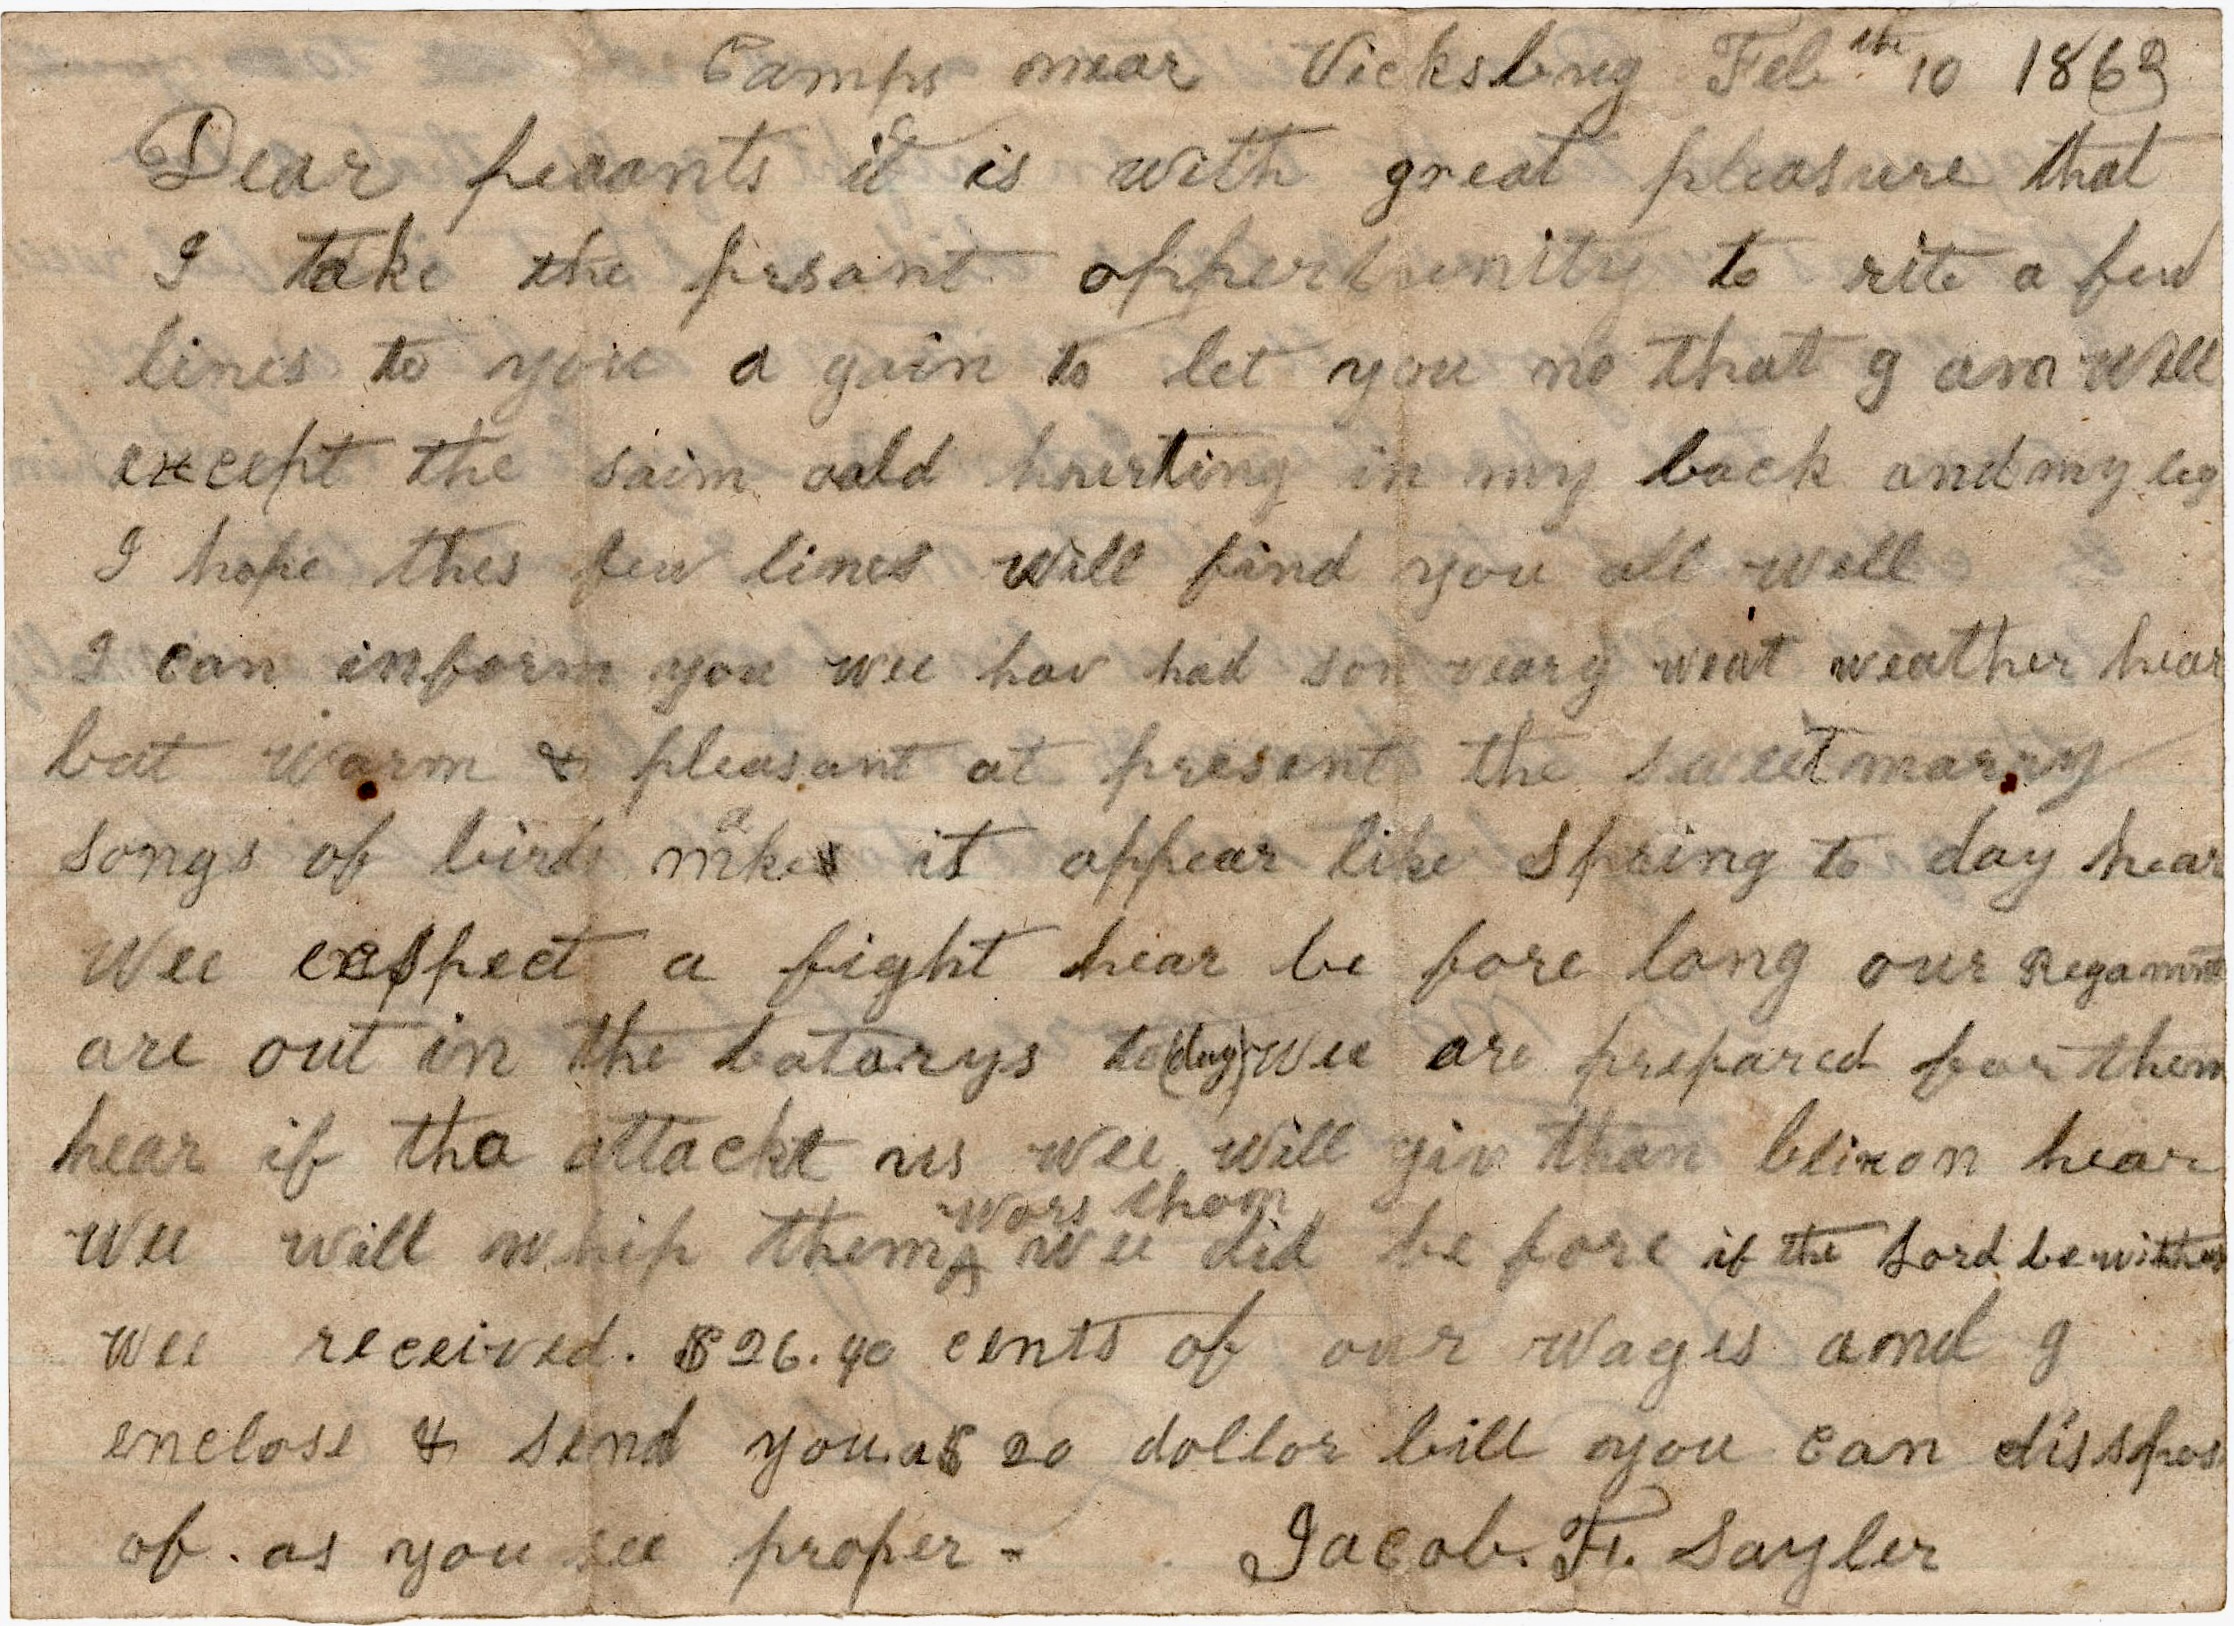 Camps near Vicksbug Feb the 10 1863
Dear peaants it is with great pleasure that
I take the prsant oppertunity to rite a few
lines to you a gain to let you no that I am well
except the saim oald hourting in my back and my leg
I hope thes few lines will find you all well
I can inform you wee hav had som veary weat weather hear
but warm & pleasant at present the sweet marry
songs of birds makes it appear like spring to day hear
Wee exspect a fight hear be fore long our Regamnt
are out in the batarys to (day) wee are prepared for them
hear if tha attackt us wee will giv than blixon hear
wors tham
Wee will whip them ^ wee did be fore if the Lord be with us
wee received. $26.40 cents of our wages and I
enclose & send you a $ 20 dollar bill you can disspos
of. as you see proper - Jacob. F. Sayler